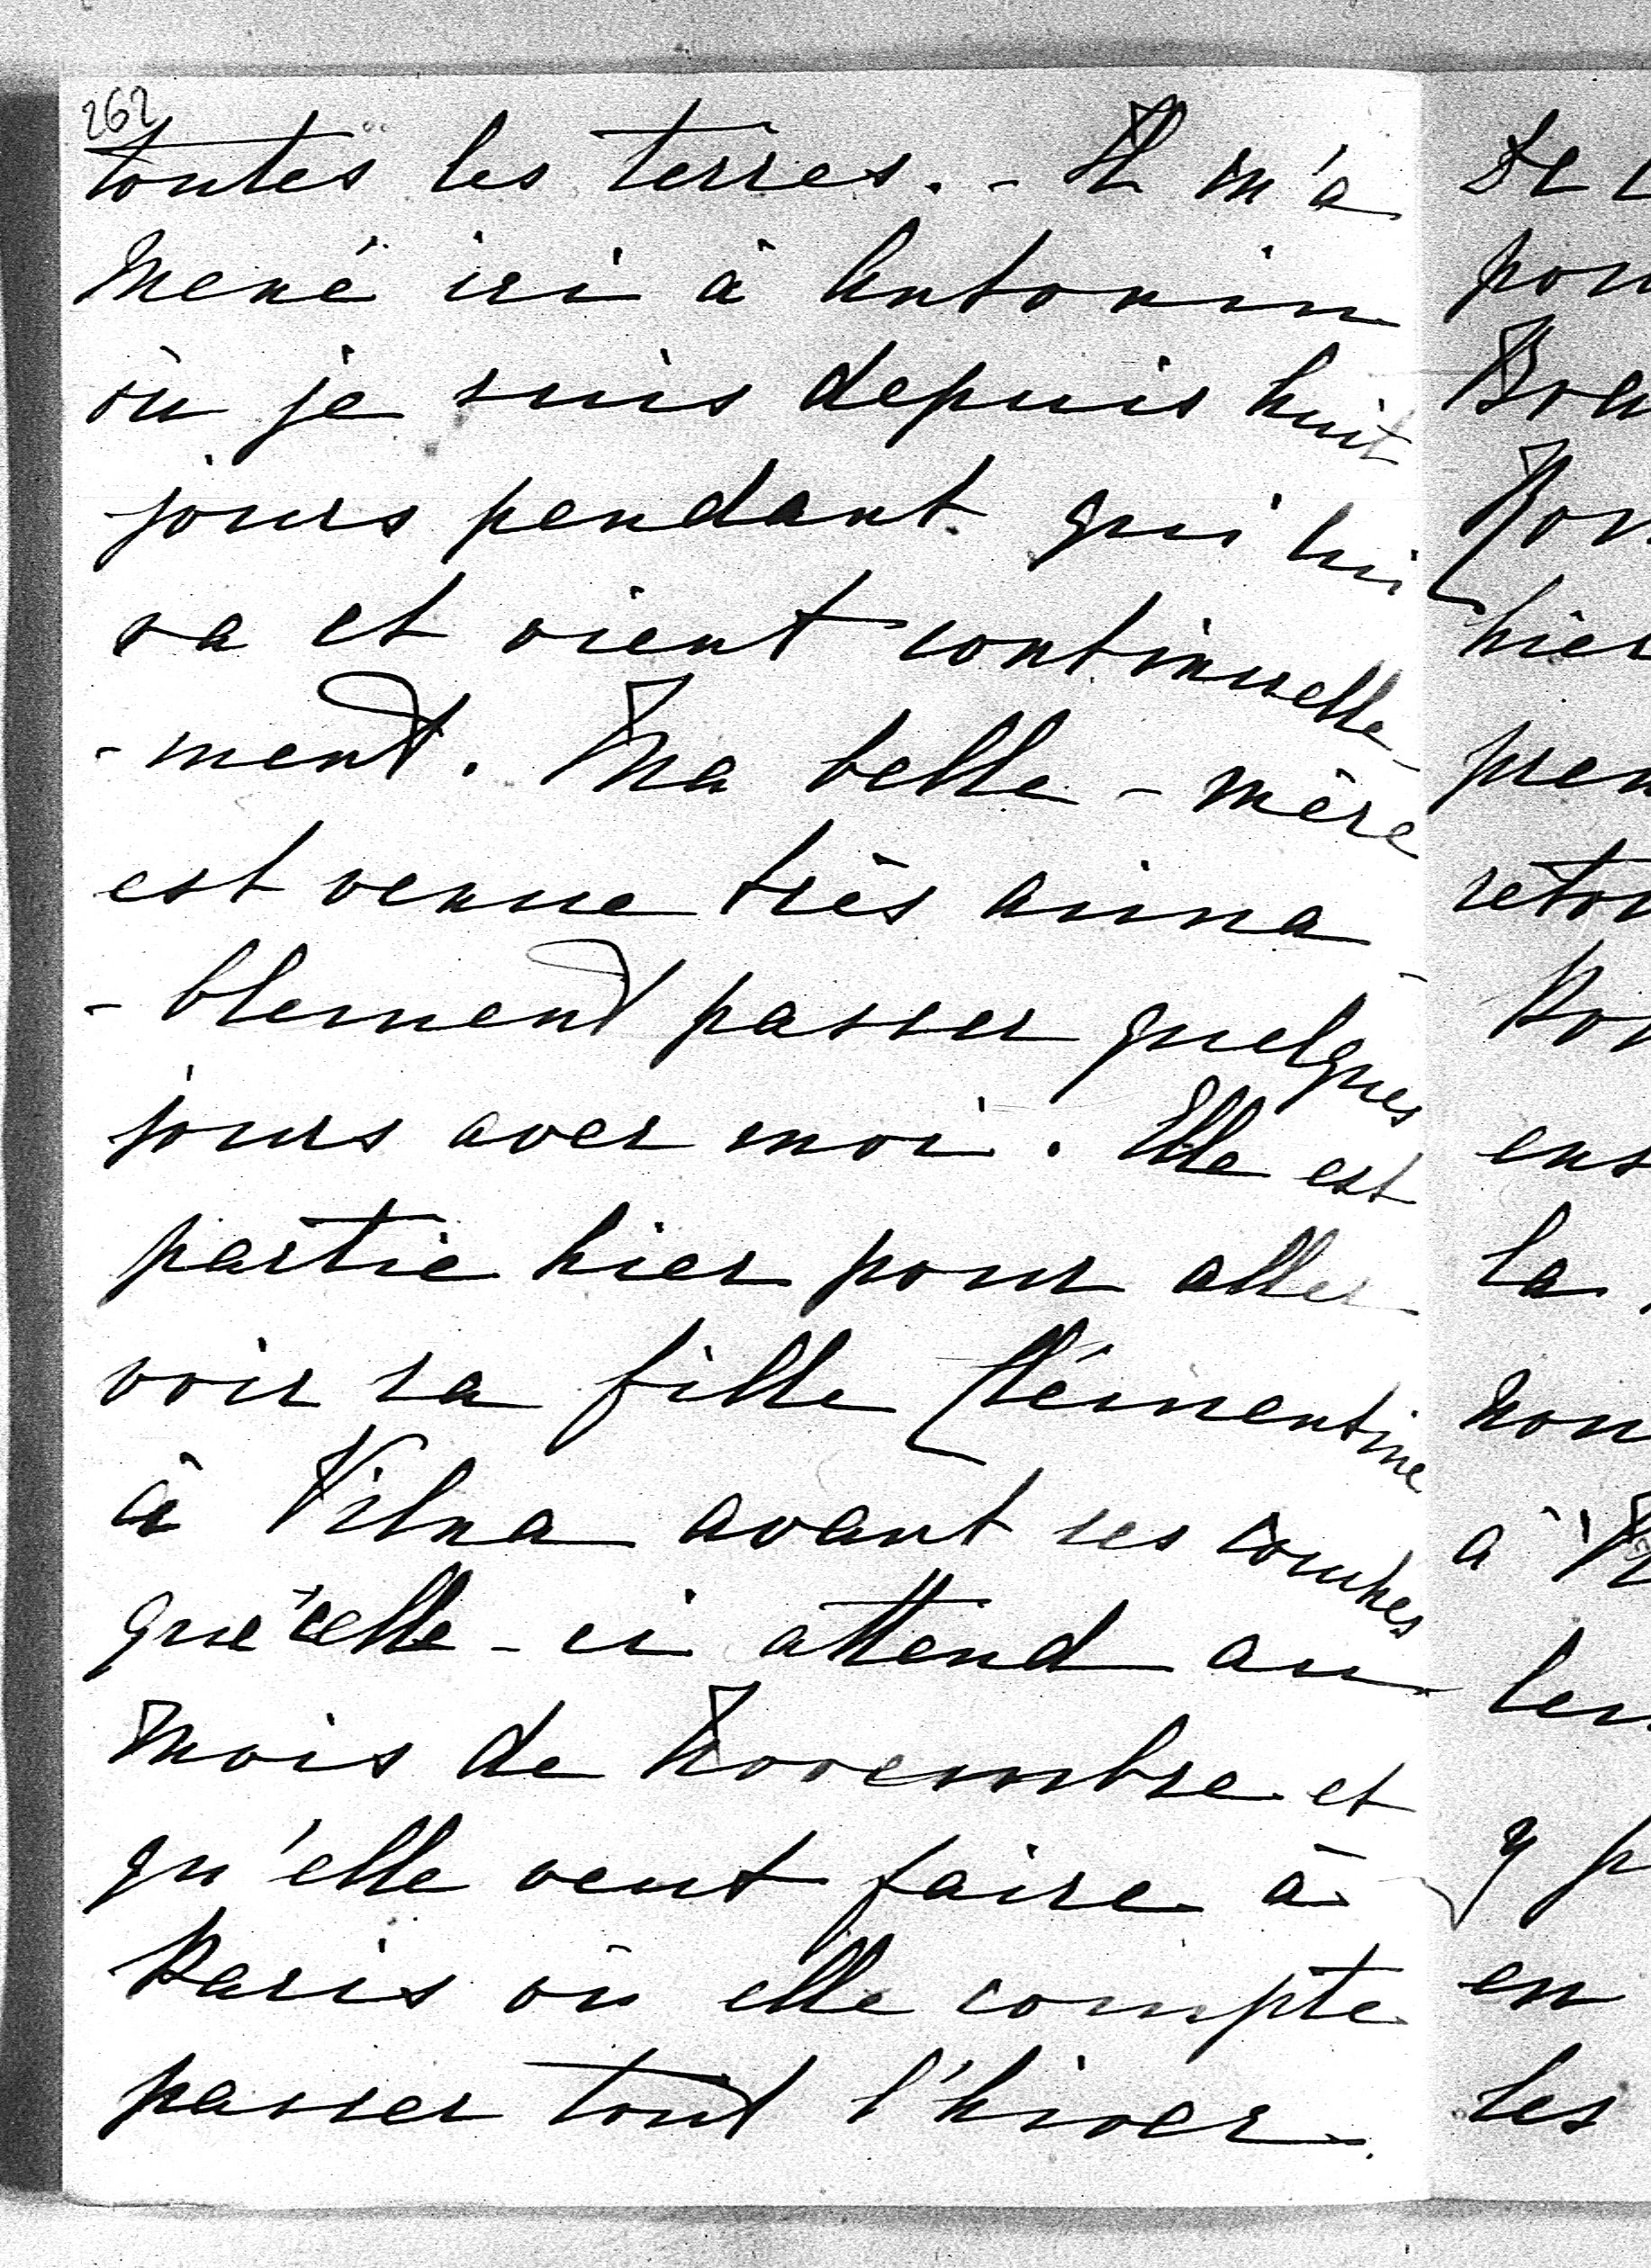 262
toutes les terres. - Il m'a
mené ici à Antonin
où je suis depuis huit
jours pendant qui lui
va et vient continuelle
-ment. Ma belle-mère
est venue très aima-
-blement passer quelques
jours avec moi. Elle est
partie hier pour aller
voir sa fille Clémentine
à Vilna avant ses couches
que celle-ci attend au
mois de Novembre et
qu'elle veut faire à
Paris où elle compte
passer tout l'hiver.
hier
ens
la
à
y p
en
les